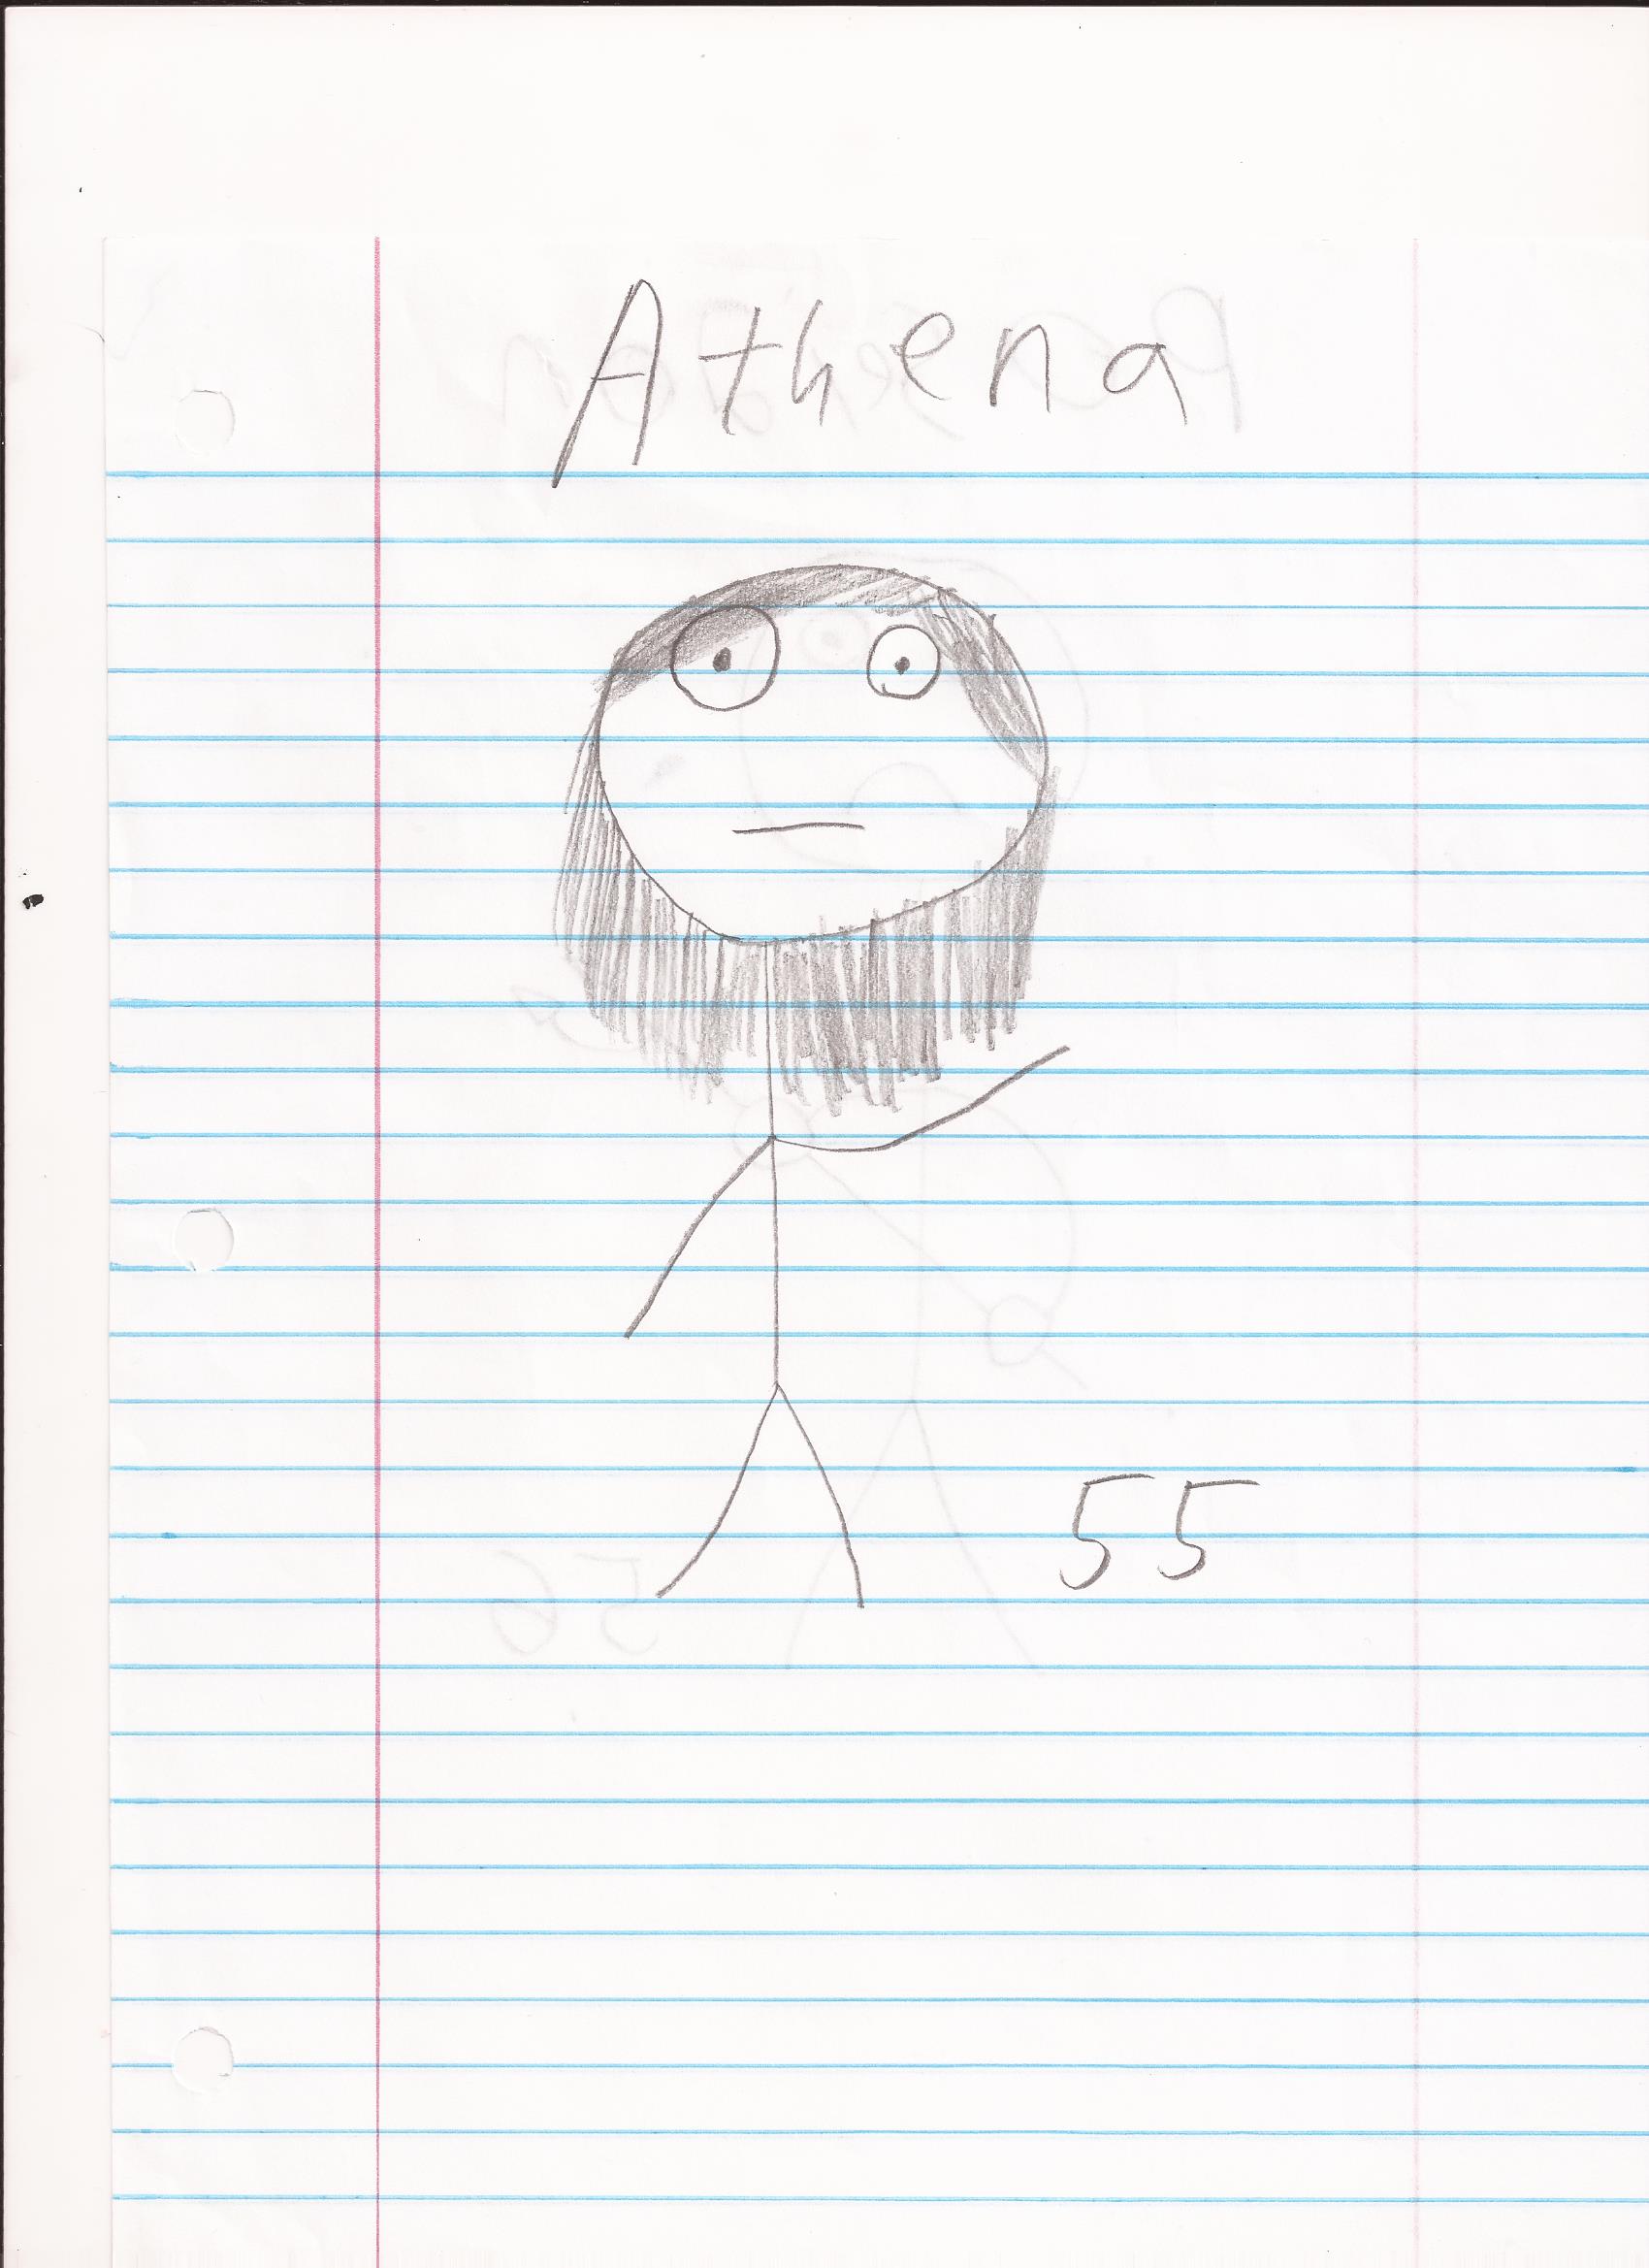 Athena
55